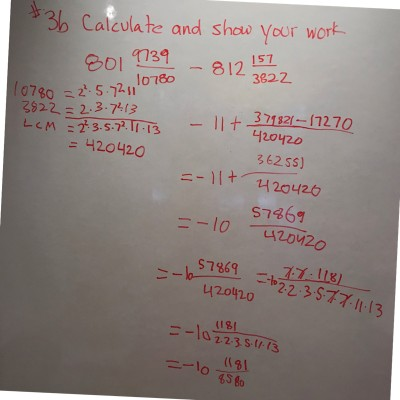 #3b Calculate and show your work
801 9739/10780 - 812 157/3822
10780 = 2²·5·7²·11
3822 = 2·3·7²·13
LCM = 2²·3·5·7²·11·13
= 420420
- 11 + 379821-17270/420420
= -11 + 362551/420420
= -10 57869/420420
= -10 57869/420420 = -10 7·7·1181/2·2·3·5·7·7·11·13
= -10 1181/2·2·3·5·11·13
= -10 1181/8580